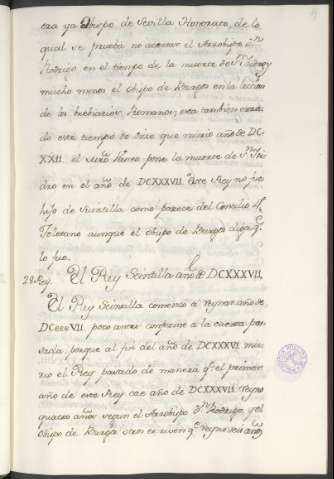 era ya Obispo de Sevilla Honorato, de lo
qual se prueba no acertar el Arzobispo Dn
Rodrigo en el tiempo de la muerte de Sn
mucho menos el Obispo de Burgos en la
de los breviarios Romanos; esta tambien
do este tiempo se dize que murio año de DC-
XXII. el pone la muerte de Sn Isi-
dro en el año de DCXXXVII. este Rey no fue
hijo de Suintilla como parece del Concilio 4º
Toletano aunque el Obispo de Burgos diga q̃
lo fue.
28 Rey. El Rey Scintilla año de DCXXXVII.
El Rey Scintilla comenzo a reynar año de
poco antes conforme a la cuenta pa-
sada; porque al fin del año de DCXXXVI mu-
rio el Rey pasado de manera q̃ el primer
año de este Rey cae año de DCXXXVII. reyno
quatro años segun el Arzobispo Dn Rodrigo, y el
Obispo de Burgos otros escriven q̃ reyno seis años